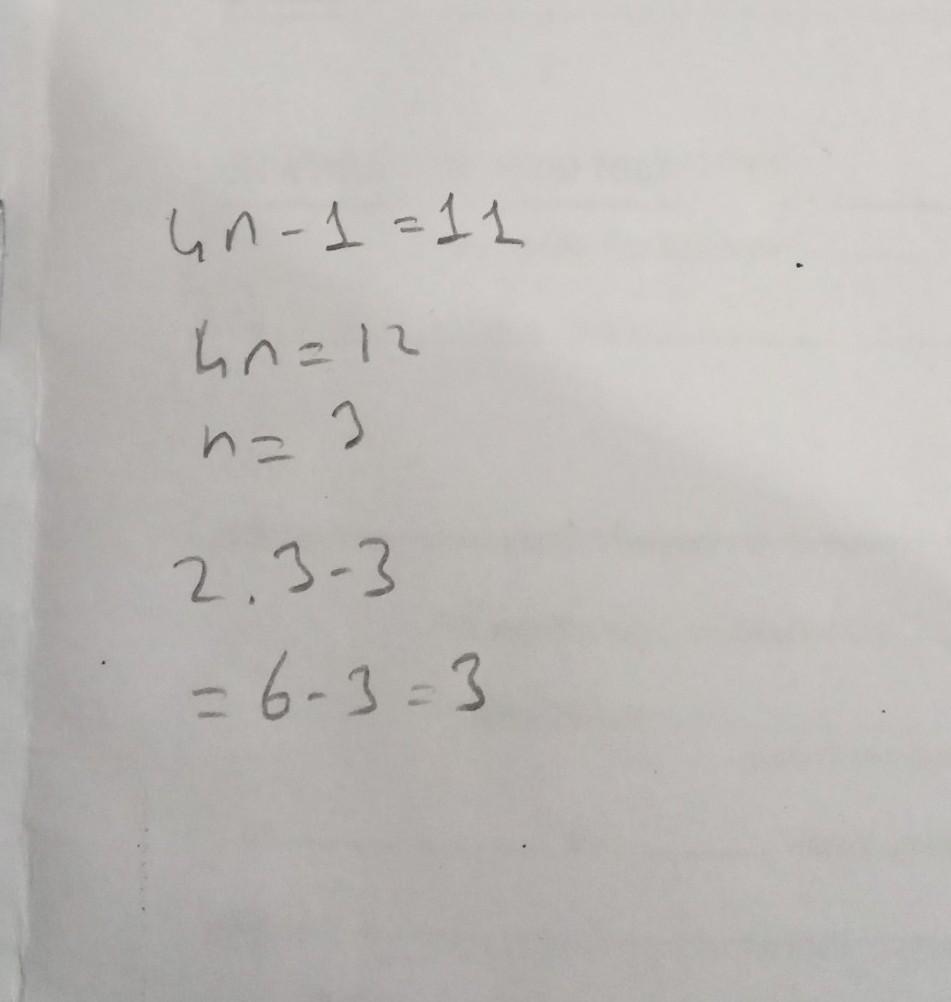 4n-1=11
4n=12
n=3
2.3-3
=6-3=3